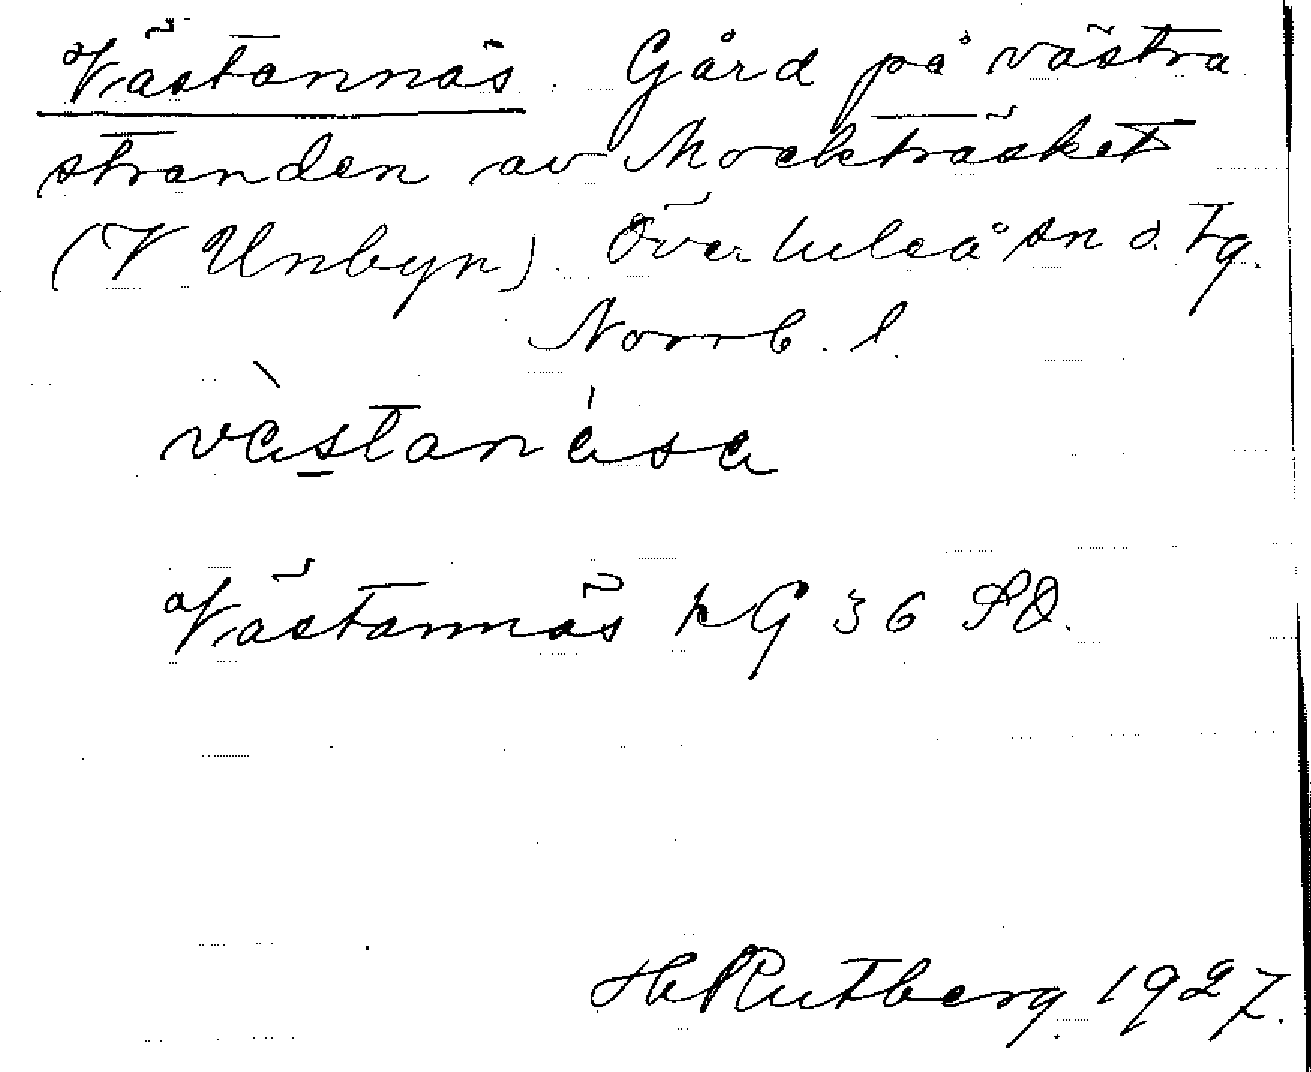 Västannäs. Gård på västra
stranden av Mockträsket
(V Unbyn). Överluleå sn o. tg.
Norrb. l.
vàstanása
Västannäs kG 36 SO.
H Rutberg 1927.